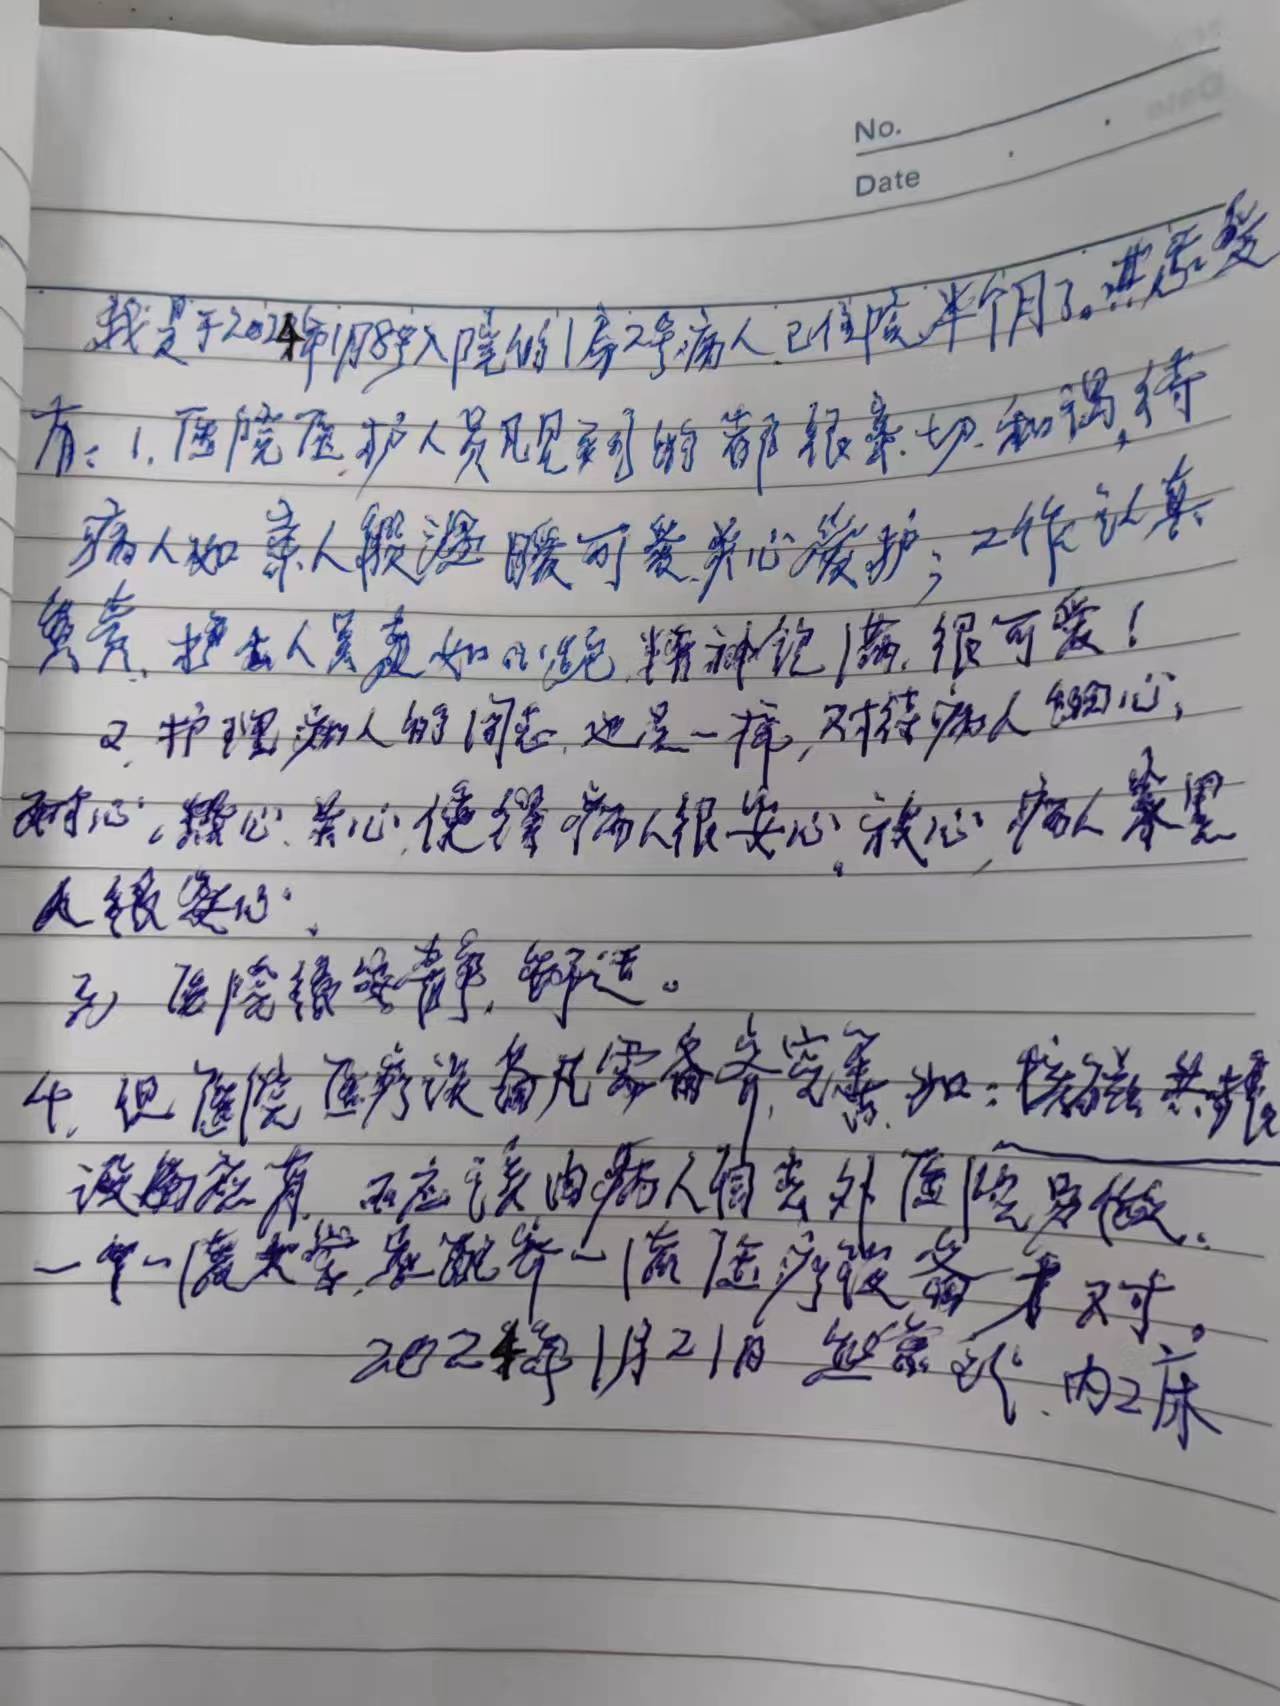 No.
Date
我是于2024年1月8号入院的1房2号病人.已住院半个月了.其感受
有:1.医院医护人员凡见到的都很亲切.和谒,待
病人如亲人般温暖可爱.关心爱护;工作认真
负责.护士人员更如此.精神饱满.很可爱!
2.护理病人的同志.也是一样,对待病人细心,
耐心,热心.关心,使得病人很安心.放心,病人家里
人很安心.
3) 医院很安静,舒适。
4.但医院医疗设备凡需备齐完善.如:核磁共振
设备应有.不应该由病人自去外医院另做.
一座大学,要配齐一流医疗设备才对。
2024年1月21日 内2床